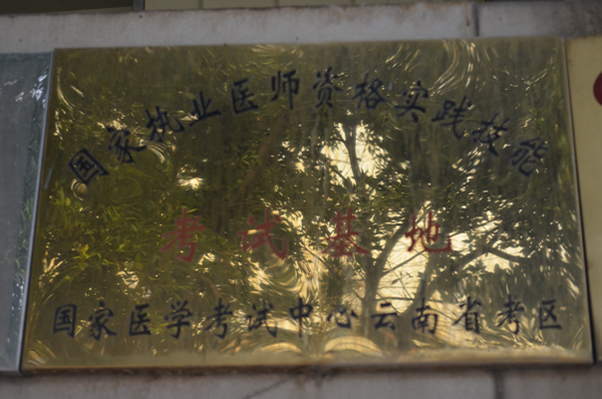 国家执业医师资格实践技能
考试基地
国家医学考试中心云南省考区